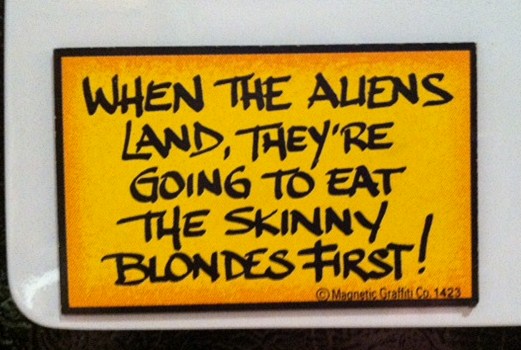 WHEN THE ALIENS
LAND, THEY'RE
GOING TO EAT
THE SKINNY
BLONDES FIRST!
© Magnetic Graffiti Co. 1423